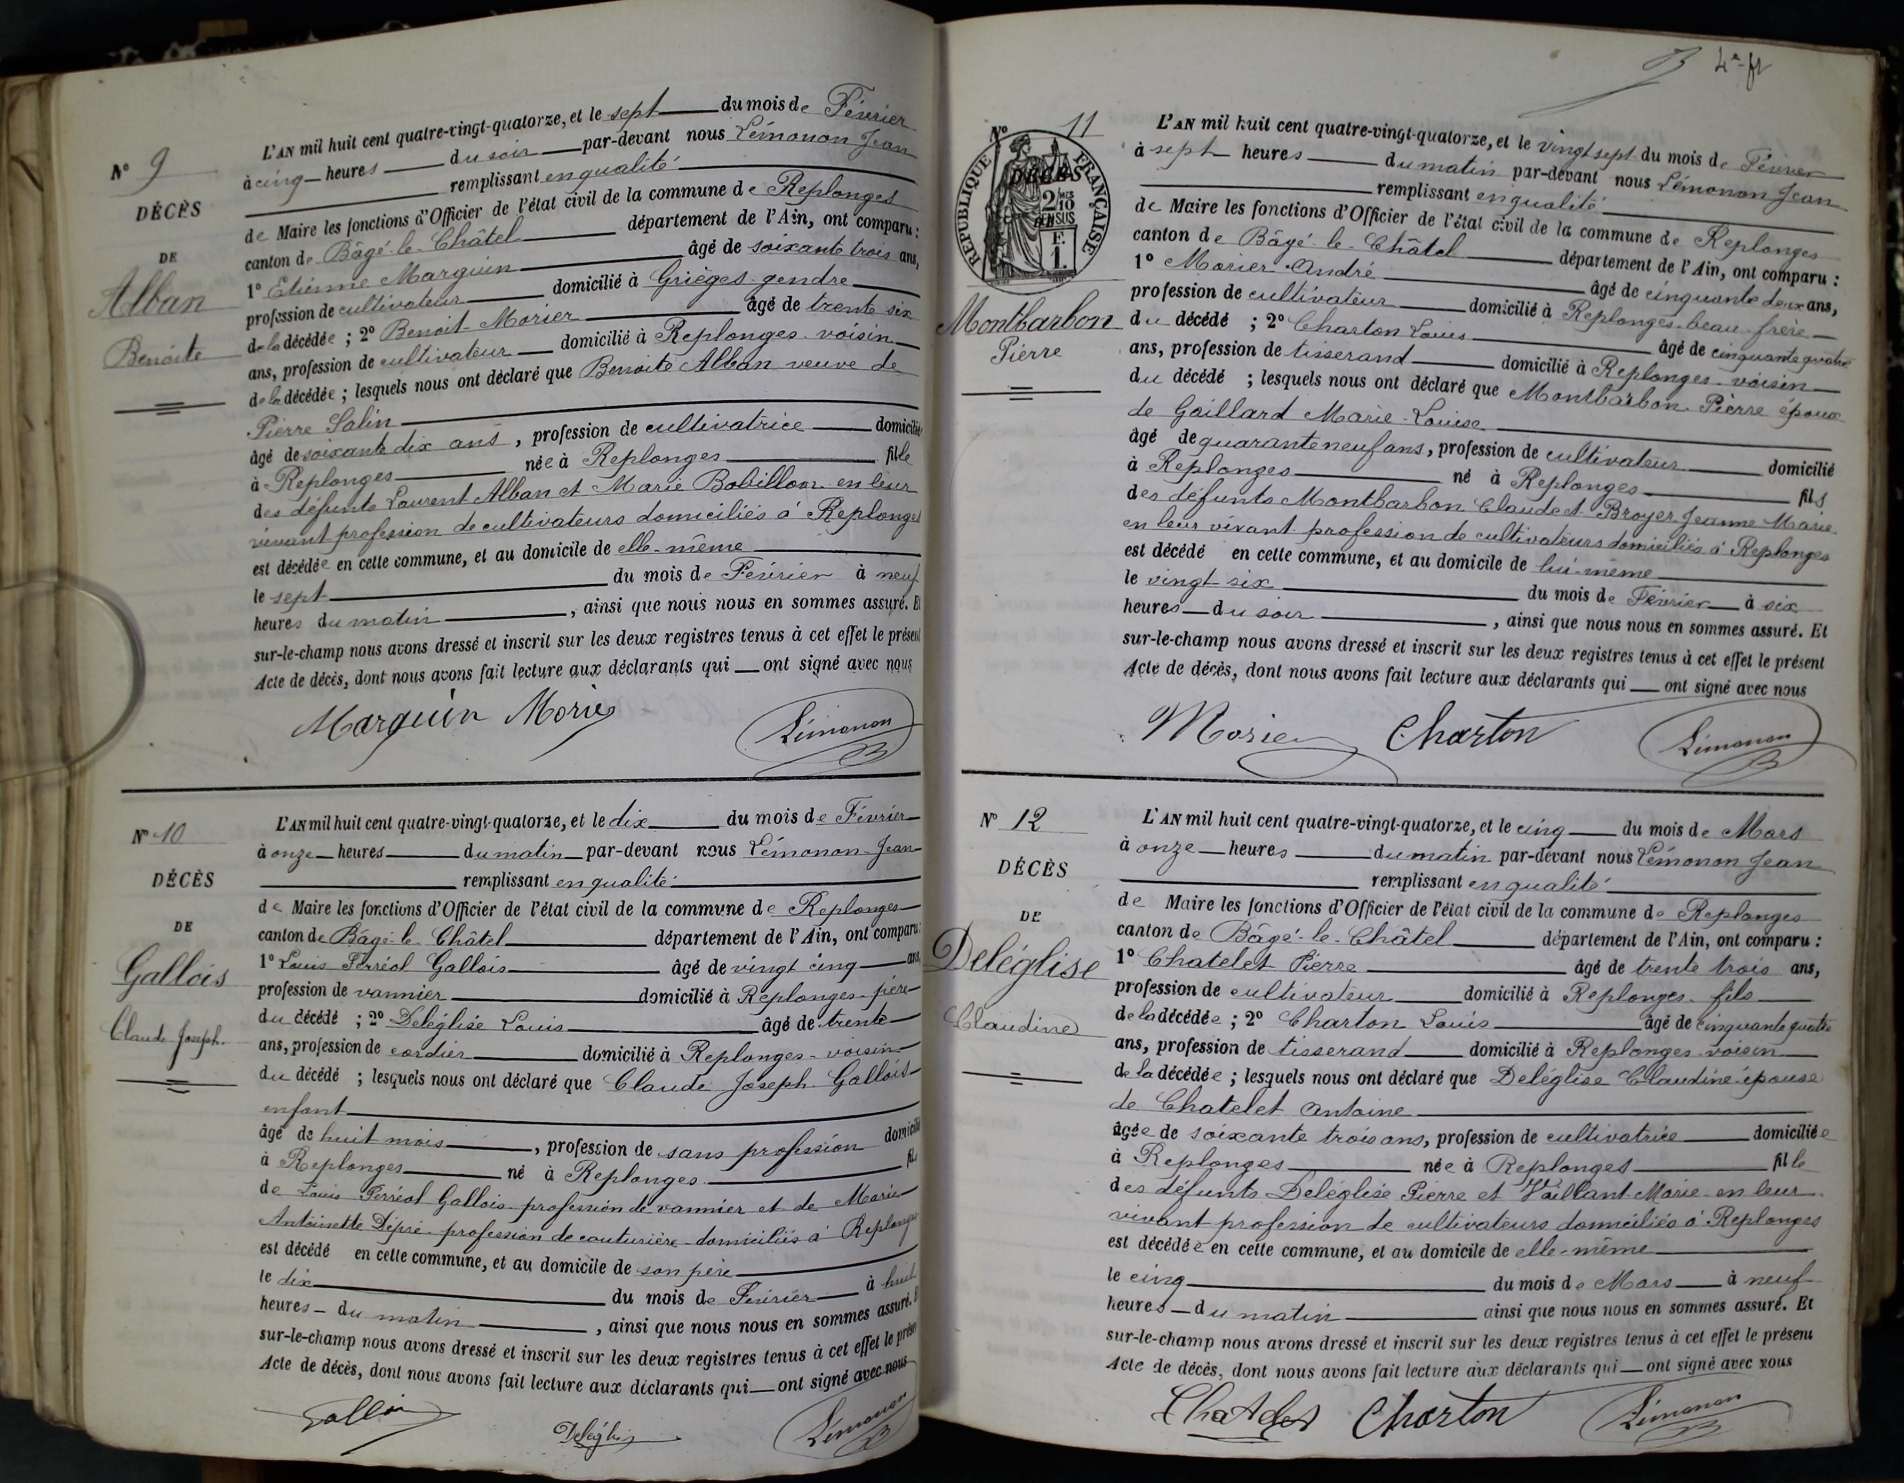 L'AN mil huit cent quatre-vingt-quatorze, et le sept du mois de Février
à cinq heures du soir par-devant nous Lémonon Jean
remplissant en qualité
de Maire les fonctions d'Officier de l'état civil de la commune de Replonges
canton de Bâgé-le-Châtel département de l'Ain, ont comparu :
1º Etienne Marguin âgé de soixante trois ans,
profession de cultivateur domicilié à Grièges gendre
de la décédée ; 2º Benoit Morier âgé de trente six
ans, profession de cultivateur domicilié à Replonges voisin
de la décédée ; lesquels nous ont déclaré que Benoite Alban veuve de
Pierre Salin
âgé de soixante dix ans, profession de cultivatrice domiciliée
à Replonges née à Replonges fille
des défunts Laurent Alban et Marie Bobillon en leur
vivant profession de cultivateurs domiciliés à Replonges
est décédée en cette commune, et au domicile de elle-même
le sept du mois de Février à neuf
heures du matin, ainsi que nous nous en sommes assuré. Et
sur-le-champ nous avons dressé et inscrit sur les deux registres tenus à cet effet le présent
Acte de décès, dont nous avons fait lecture aux déclarants qui ont signé avec nous
Marguin Morier Lémonon
Nº 9
DÉCÈS
DE
Alban
Benoite
L'AN mil huit cent quatre-vingt-quatorze, et le dix du mois de Février
à onze heures du matin par-devant nous Lémonon Jean
remplissant en qualité
de Maire les fonctions d'Officier de l'état civil de la commune de Replonges
canton de Bâgé-le-Châtel département de l'Ain, ont comparu :
1º Louis Ferréol Gallois âgé de vingt cinq ans
profession de vannier domicilié à Replonges père
du décédé ; 2º Deléglise Louis âgé de trente
ans, profession de cordier domicilié à Replonges voisin
du décédé ; lesquels nous ont déclaré que Claude Joseph Gallois
enfant
âgé de huit mois, profession de sans profession domicilié
à Replonges né à Replonges fils
de Louis Ferréol Gallois profession de vannier et de Marie
Antoinette Dépré profession de couturière domiciliés à Replonges
est décédé en cette commune, et au domicile de son père
le dix du mois de Février à huit
heures du matin, ainsi que nous nous en sommes assuré. Et
sur-le-champ nous avons dressé et inscrit sur les deux registres tenus à cet effet le présent
Acte de décès, dont nous avons fait lecture aux déclarants qui ont signé avec nous
Gallois Deléglise Lémonon
Nº 10
DÉCÈS
DE
Gallois
Claude Joseph
Nº 11
DÉCÈS
RÉPUBLIQUE FRANÇAISE
2/10 EN SUS
F. 1
Montbarbon
Pierre
L'AN mil huit cent quatre-vingt-quatorze, et le vingt sept du mois de Février
à sept heures du matin par-devant nous Lémonon Jean
remplissant en qualité
de Maire les fonctions d'Officier de l'état civil de la commune de Replonges
canton de Bâgé-le-Châtel département de l'Ain, ont comparu :
1º Morier André âgé de cinquante deux ans,
profession de cultivateur domicilié à Replonges beau-frère
du décédé ; 2º Charton Louis âgé de cinquante quatre
ans, profession de tisserand domicilié à Replonges voisin
du décédé ; lesquels nous ont déclaré que Montbarbon Pierre époux
de Gaillard Marie-Louise
âgé de quarante neuf ans, profession de cultivateur domicilié
à Replonges né à Replonges fils
des défunts Montbarbon Claude et Broyer Jeanne Marie
en leur vivant profession de cultivateurs domiciliés à Replonges
est décédé en cette commune, et au domicile de lui-même
le vingt six du mois de Février à six
heures du soir, ainsi que nous nous en sommes assuré. Et
sur-le-champ nous avons dressé et inscrit sur les deux registres tenus à cet effet le présent
Acte de décès, dont nous avons fait lecture aux déclarants qui ont signé avec nous
Morier Charton Lémonon
Nº 12
DÉCÈS
DE
Deléglise
Claudine
L'AN mil huit cent quatre-vingt-quatorze, et le cinq du mois de Mars
à onze heures du matin par-devant nous Lémonon Jean
remplissant en qualité
de Maire les fonctions d'Officier de l'état civil de la commune de Replonges
canton de Bâgé-le-Châtel département de l'Ain, ont comparu :
1º Chatelet Pierre âgé de trente trois ans,
profession de cultivateur domicilié à Replonges fils
de la décédée ; 2º Charton Louis âgé de cinquante quatre
ans, profession de tisserand domicilié à Replonges voisin
de la décédée ; lesquels nous ont déclaré que Deléglise Claudine épouse
de Chatelet Antoine
âgée de soixante trois ans, profession de cultivatrice domiciliée
à Replonges née à Replonges fille
des défunts Deléglise Pierre et Vaillant Marie en leur
vivant profession de cultivateurs domiciliés à Replonges
est décédée en cette commune, et au domicile de elle-même
le cinq du mois de Mars à neuf
heures du matin ainsi que nous nous en sommes assuré. Et
sur-le-champ nous avons dressé et inscrit sur les deux registres tenus à cet effet le présent
Acte de décès, dont nous avons fait lecture aux déclarants qui ont signé avec nous
Chatelet Charton Lémonon